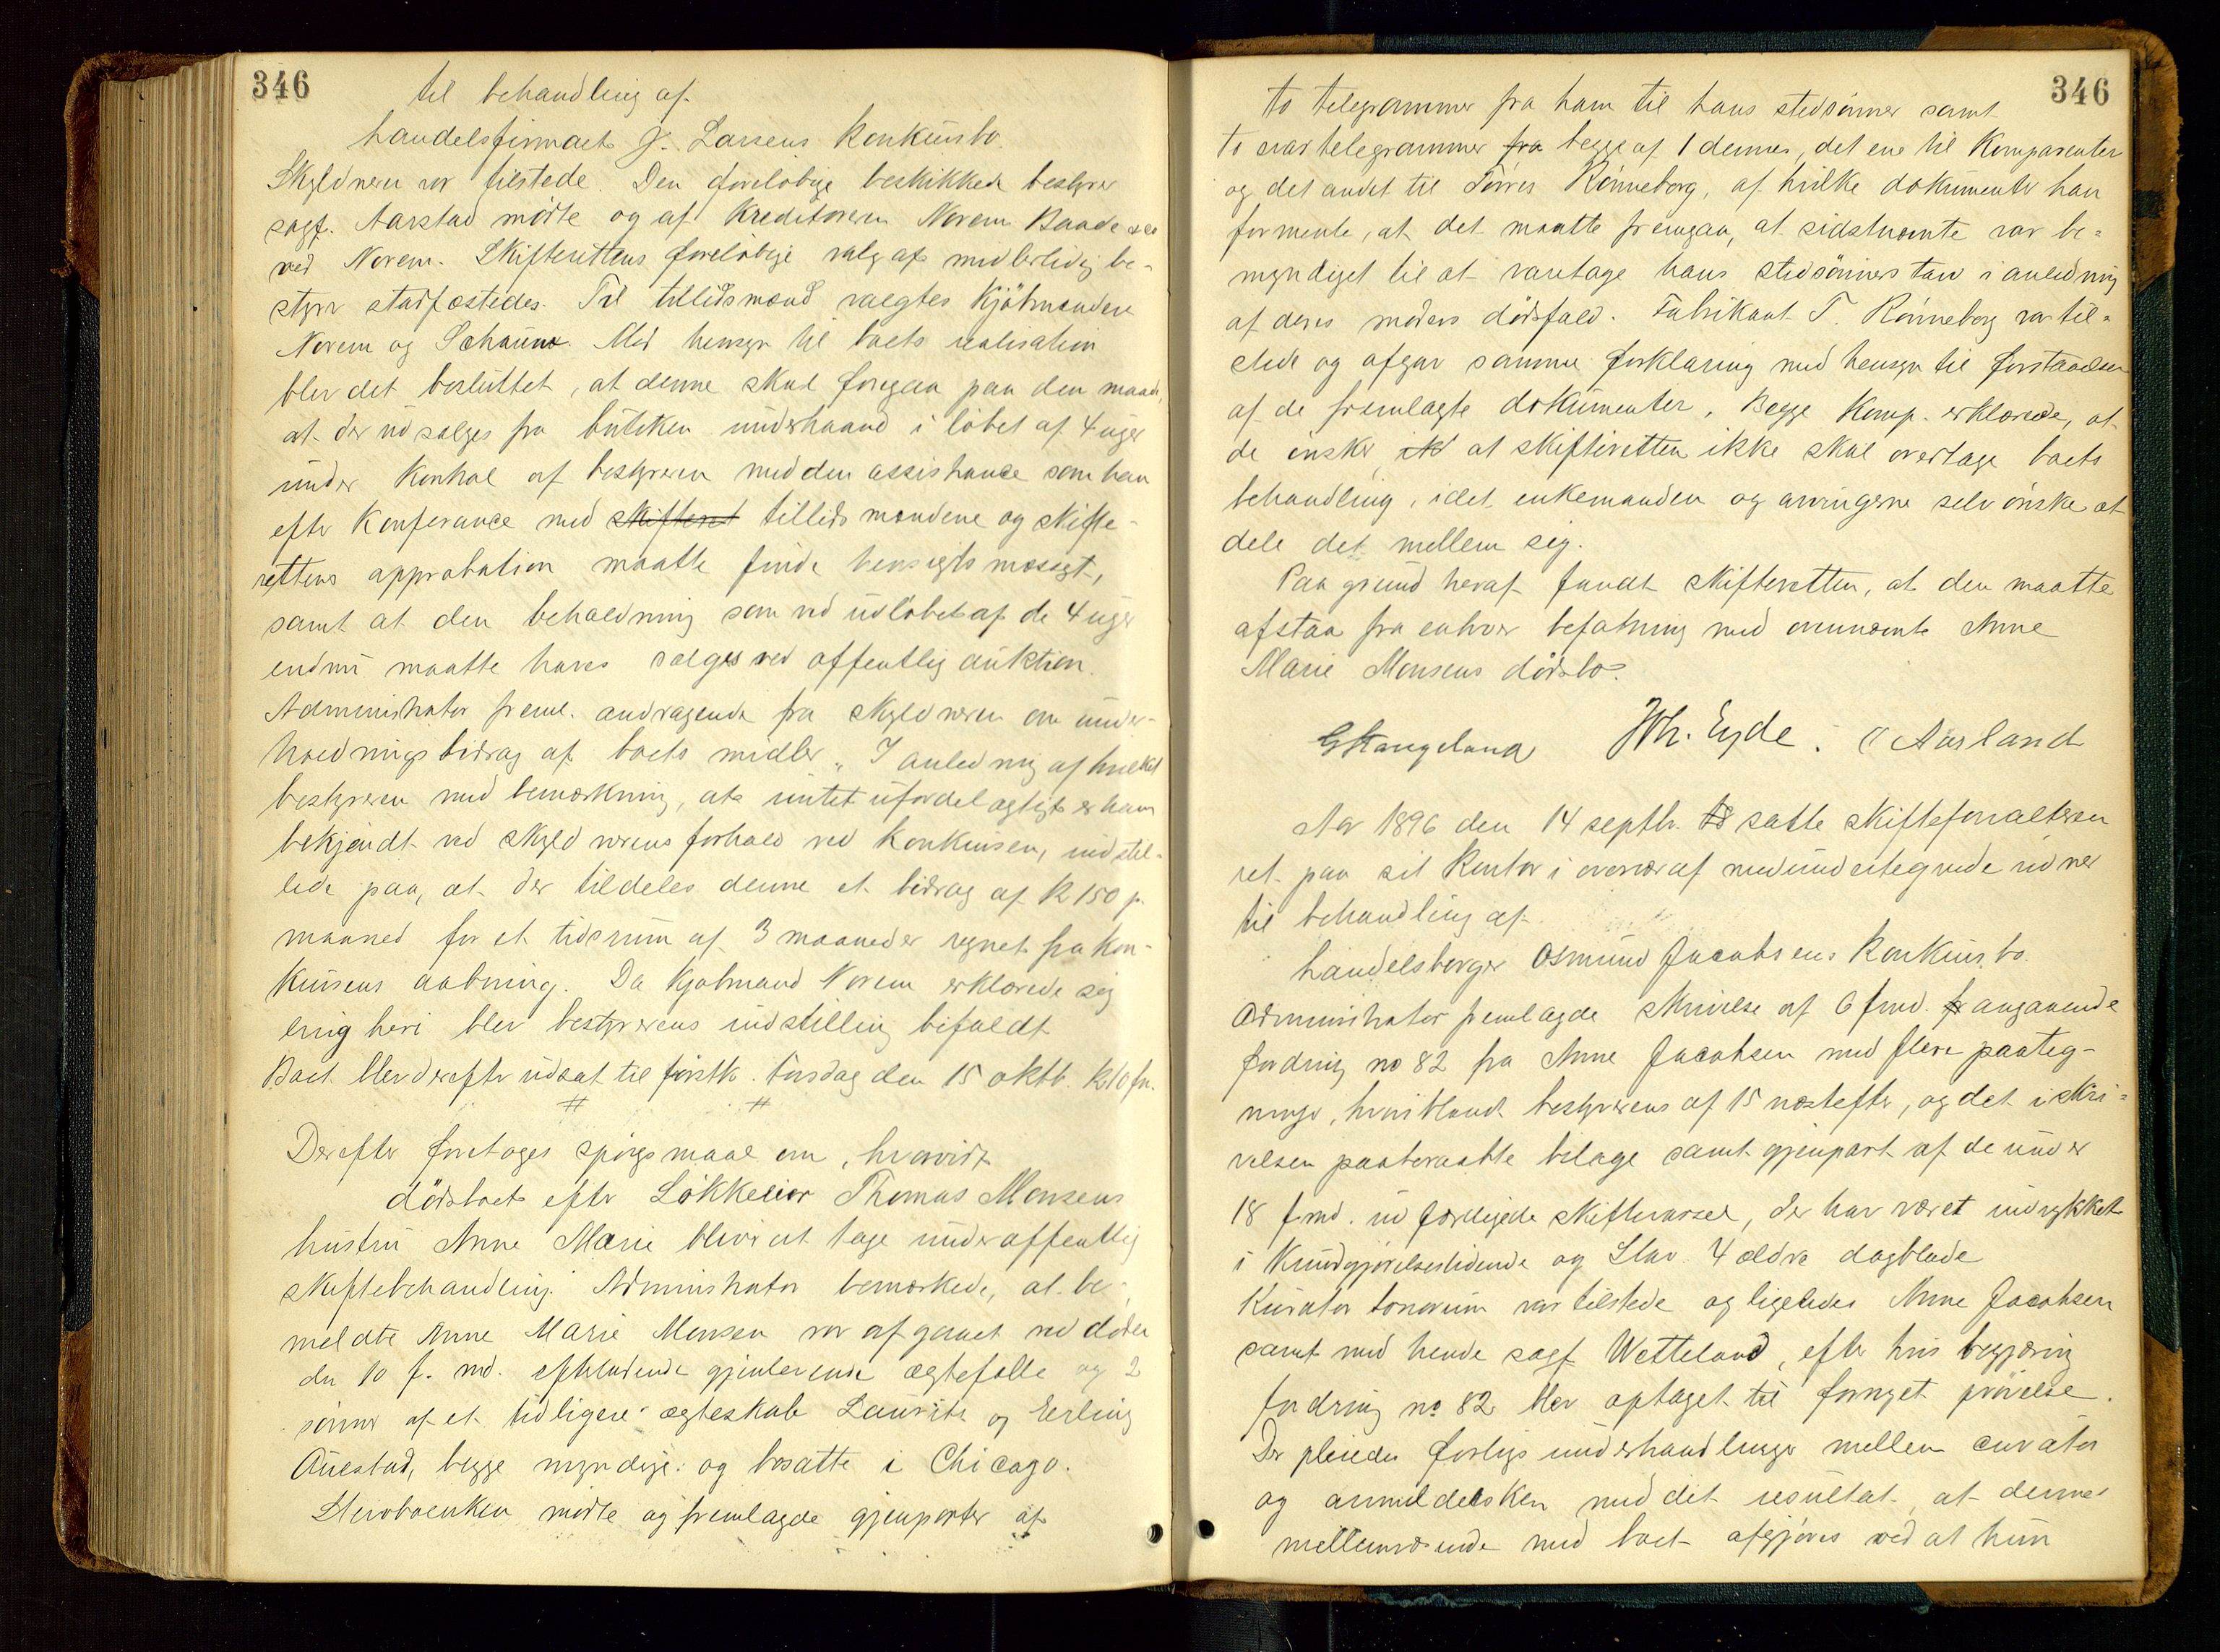 346
til behandling af
handelsfirmaet J. Larsens Konkursbo.
Skyldneren var tilstede. Den foreløbige beskikkede bestyrer
sagf. Aarstad mødte og af Kreditoreren Norem Baade & Co
ved Norem. Skifterettens foreløbige valg af midlertidig be-
styrer stadfæstedes. Til tillidsmænd valgtes Kjøbmændene
Norem og Schaunw. Med hensyn til boets realisation
blev det besluttet, at denne skal foregaa paa den maade,
at der udsælges fra butiken underhaand i løbet af 4 uger
under Kontrol af bestyreren med den assistance som han
efter Konferance med skifteret tillidsmændene og skifte-
rettens approbation maatte finde hensigtsmæssigt,
samt at den beholdning som ved udløbet af de 4 uger
endnu maatte haves sælges ved offentlig auktion.
Administrator freml. andragende fra skyldneren om under-
holdningsbidrag af boets midler. I anledning af hvilket
bestyreren med bemærkning, at intet ufordelagtigt er ham
bekjendt ved skyldnerens forhold ved Konkursen, indstil-
lede paa, at der tildeles denne et bidrag af K 150 p.
maaned for et tidsrum af 3 maaneder regnet fra kon-
kursens aabning. Da Kjøbmand Norem erklærede sig
enig heri blev bestyrerens indstilling bifaldt.
Boet blev derefter udsat til førstk. torsdag den 15 oktb. Kl 10 fm.
# #
Derefter foretoges spørgsmaal om, hvorvidt
dødsboet efter Løkkeeier Thomas Monsens
hustru Anne Marie bliver at tage under offentlig
skiftebehandling. Administrator bemærkede, at be-
meldte Anne Marie Monsen var afgaaet ved døden
den 10 f. md. efterladende gjenlevende ægtefælle og 2
sønner af et tidligere ægteskab Laurits og Erling
Auestad, begge myndige og bosatte i Chicago.
Stervboenken mødte og fremlagde gjenparter af
346
to telegrammer fra ham til hans stedsønner samt
to svartelegrammer fra begge af 1 dennes, det ene til Komparenten
og det andet til Tørres Rønneborg, af hvilke dokumenter han
formente, at det maatte fremgaa, at sidstnævnte var be-
myndiget til at varetage hans stedsønners tarv i anledning
af deres moders dødsfald. Fabrikant T. Rønneborg var til-
stede og afgav samme forklaring med hensyn til forstaaelsen
af de fremlagte dokumenter. Begge Komp. erklærede, at
de ønsker, at skifteretten ikke skal overtage boets
behandling, idet enkemanden og arvingerne selv ønske at
dele det mellem sig.
Paa grund heraf fandt skifteretten, at den maatte
afstaa fra enhver befatning med ovennævnte Anne
Marie Monsens dødsbo.
G Stangeland Wh. Eyde. O Aarland
Aar 1896 den 14 septbr. satte skifteforvalteren
ret paa sit Kontor i overvær af medundertegnede vidner
til behandling af
handelsborger Osmund Jacobsens Konkursbo.
Administrator fremlagde skrivelse af 6 f.md. angaaende
fordring no 82 fra Anne Jacobsen med flere paateg-
ninger, hvoriblandt bestyrerens af 15 næstefter, og det i skri-
velsen paaberaabte bilage samt gjenpart af de under
18 f.md. udfærdigede skiftevarsel, der har været indrykket
i Kundgjørelsestidende og Stav. 4 ældre dagblade
Kurator bonorum var tilstede og ligeledes Anne Jacobsen
samt med hende sagf. Wetteland, efter hvis begjæring
fordring no 82 blev optaget til fornyet prøvelse.
Der pleiedes forligsunderhandlinger mellem curator
og anmeldelsken med det resultat, at dennes
mellemværende med boet afgjøres ved at hun